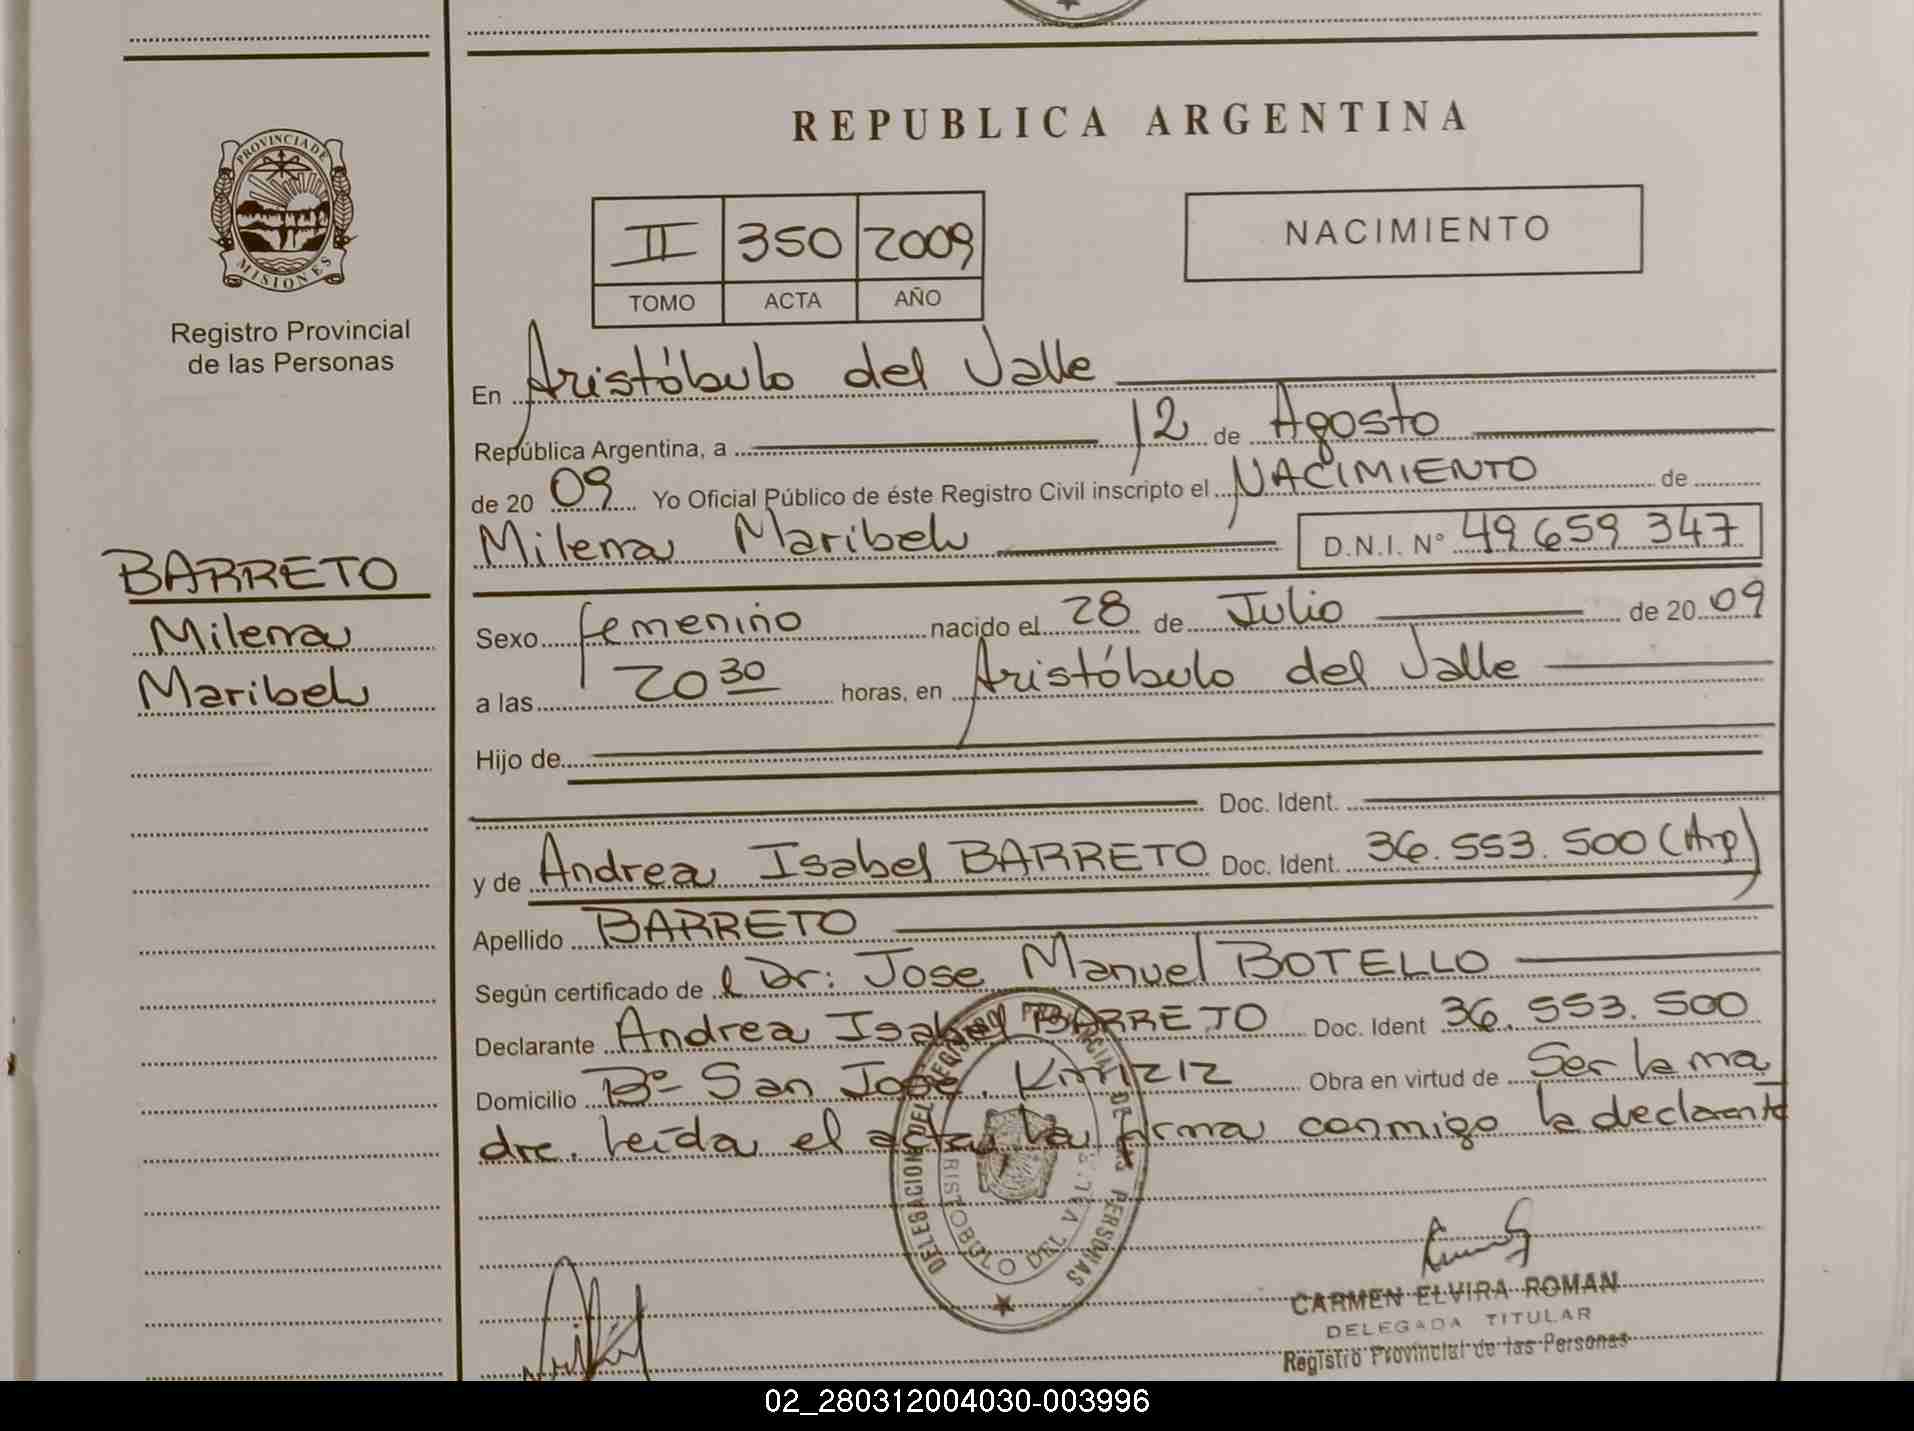 REPUBLICA ARGENTINA
PROVINCIA DE MISIONES
Registro Provincial
de las Personas
II 350 2009
TOMO ACTA AÑO
NACIMIENTO
En Aristóbulo del Valle
República Argentina, a 12 de Agosto
de 20 09 Yo Oficial Público de éste Registro Civil inscripto el NACIMIENTO de
Milena Maribel D.N.I. N° 49 659 347
BARRETO
Milena
Maribel
Sexo femenino nacido el 28 de Julio de 20 09
a las 20 30 horas, en Aristóbulo del Valle
Hijo de
Doc. Ident.
y de Andrea Isabel BARRETO Doc. Ident. 36.553.500 (Arg)
Apellido BARRETO
Según certificado de l Dr: Jose Manuel BOTELLO
Declarante Andrea Isabel BARRETO Doc. Ident 36.553.500
Domicilio B° San José. Obra en virtud de Ser la ma
dre. Leída el acta, la firma conmigo la declarante
DELEGACION DEL REGISTRO PROVINCIAL DE LAS PERSONAS
ARISTOBULO DEL VALLE
CARMEN ELVIRA ROMAN
DELEGADA TITULAR
Registro Provincial de las Personas
02_280312004030-003996